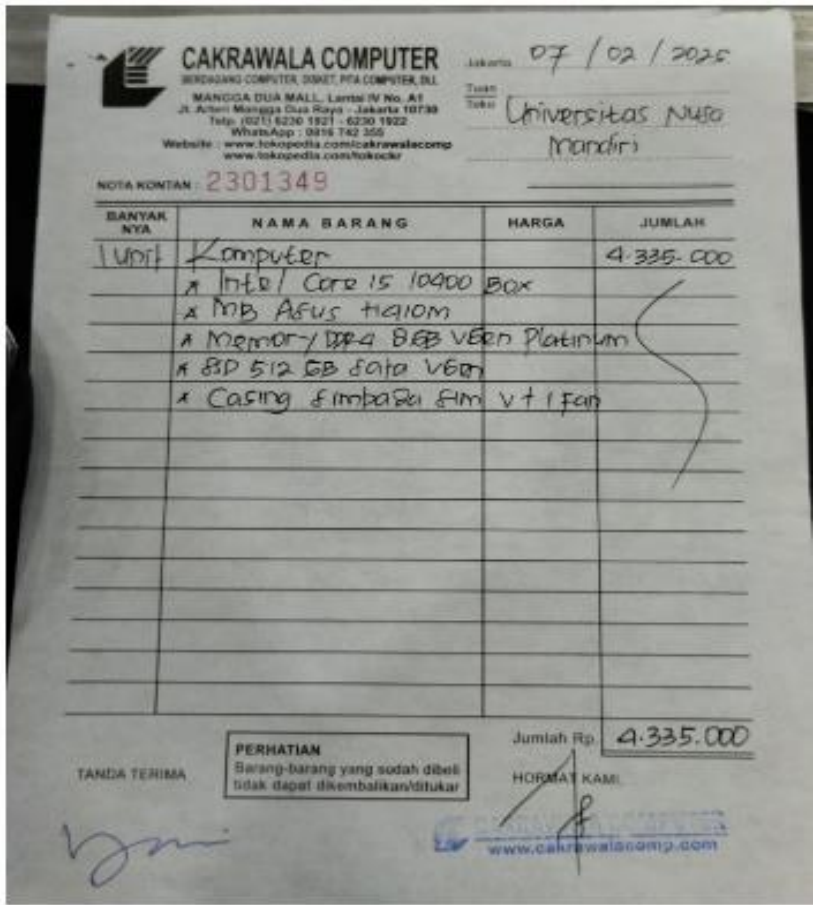 CAKRAWALA COMPUTER
BERDAGANG COMPUTER, DISKET, PITA COMPUTER, DLL
MANGGA DUA MALL, Lantai IV No. A1
Jl. Arteri Mangga Dua Raya - Jakarta 10730
Telp. (021) 6230 1921 - 6230 1922
WhatsApp : 0816 742 355
Website : www.tokopedia.com/cakrawalacomp
www.tokopedia.com/tokockr
Jakarta 07 / 02 / 2025
Tuan
Toko Universitas Nusa
Mandiri
NOTA KONTAN : 2301349
BANYAK NYA NAMA BARANG HARGA JUMLAH
1 unit Komputer 4.335.000
* Intel Core i5 10400 Box
* MB Asus H410M
* Memory DDR4 8GB VGen Platinum
* SSD 512 GB Sata VGen
* Casing Simbada Sim V + 1 Fan
Jumlah Rp. 4.335.000
TANDA TERIMA
PERHATIAN
Barang-barang yang sudah dibeli
tidak dapat dikembalikan/ditukar
HORMAT KAMI,
CAKRAWALA COMPUTER
www.cakrawalacomp.com